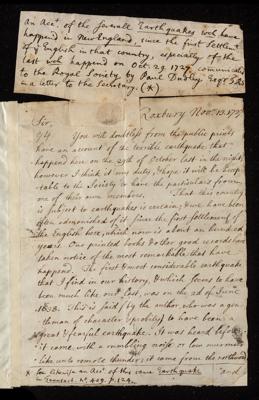 An Acc.t of the severall Earthquakes wch have
happend in New England, since the first Settlem.t
of ye English in that country, especially of the
last wch happend on Oct. 29. 1727. communicated
to the Royal Society by Paul Dudley Esqr. F.R.S.
in a letter to the Secretary. (*)
Roxbury Nov. 13. 1727
Sir,
You will doubtless from the publick prints
have an account of the terrible earthquake that
happend here on the 29th of October last in the night,
however I think it my duty, & hope it will be accep-
table to the Society to have the particulars from
one of their own members. That this country
is subject to earthquakes is certain; & we have been
often admonished of it since the first settlement of
the English here, which now is about an hundred
years. Our printed books & other good records have
taken notice of the most remarkable that have
happend. The first & most considerable earthquake
that I find in our history, & which seems to have
been much like our last, was on the 2d of June
1638. This is said by the author who was a gen-
tleman of character & probity to have been a
great & fearful earthquake. It was heard before
it came, with a rumbling noise or low murmurs
like unto remote thunder; it came from the northward
and
* See likewise an Acc.t of this same Earthquake
in Transact. No. 409. p. 124.